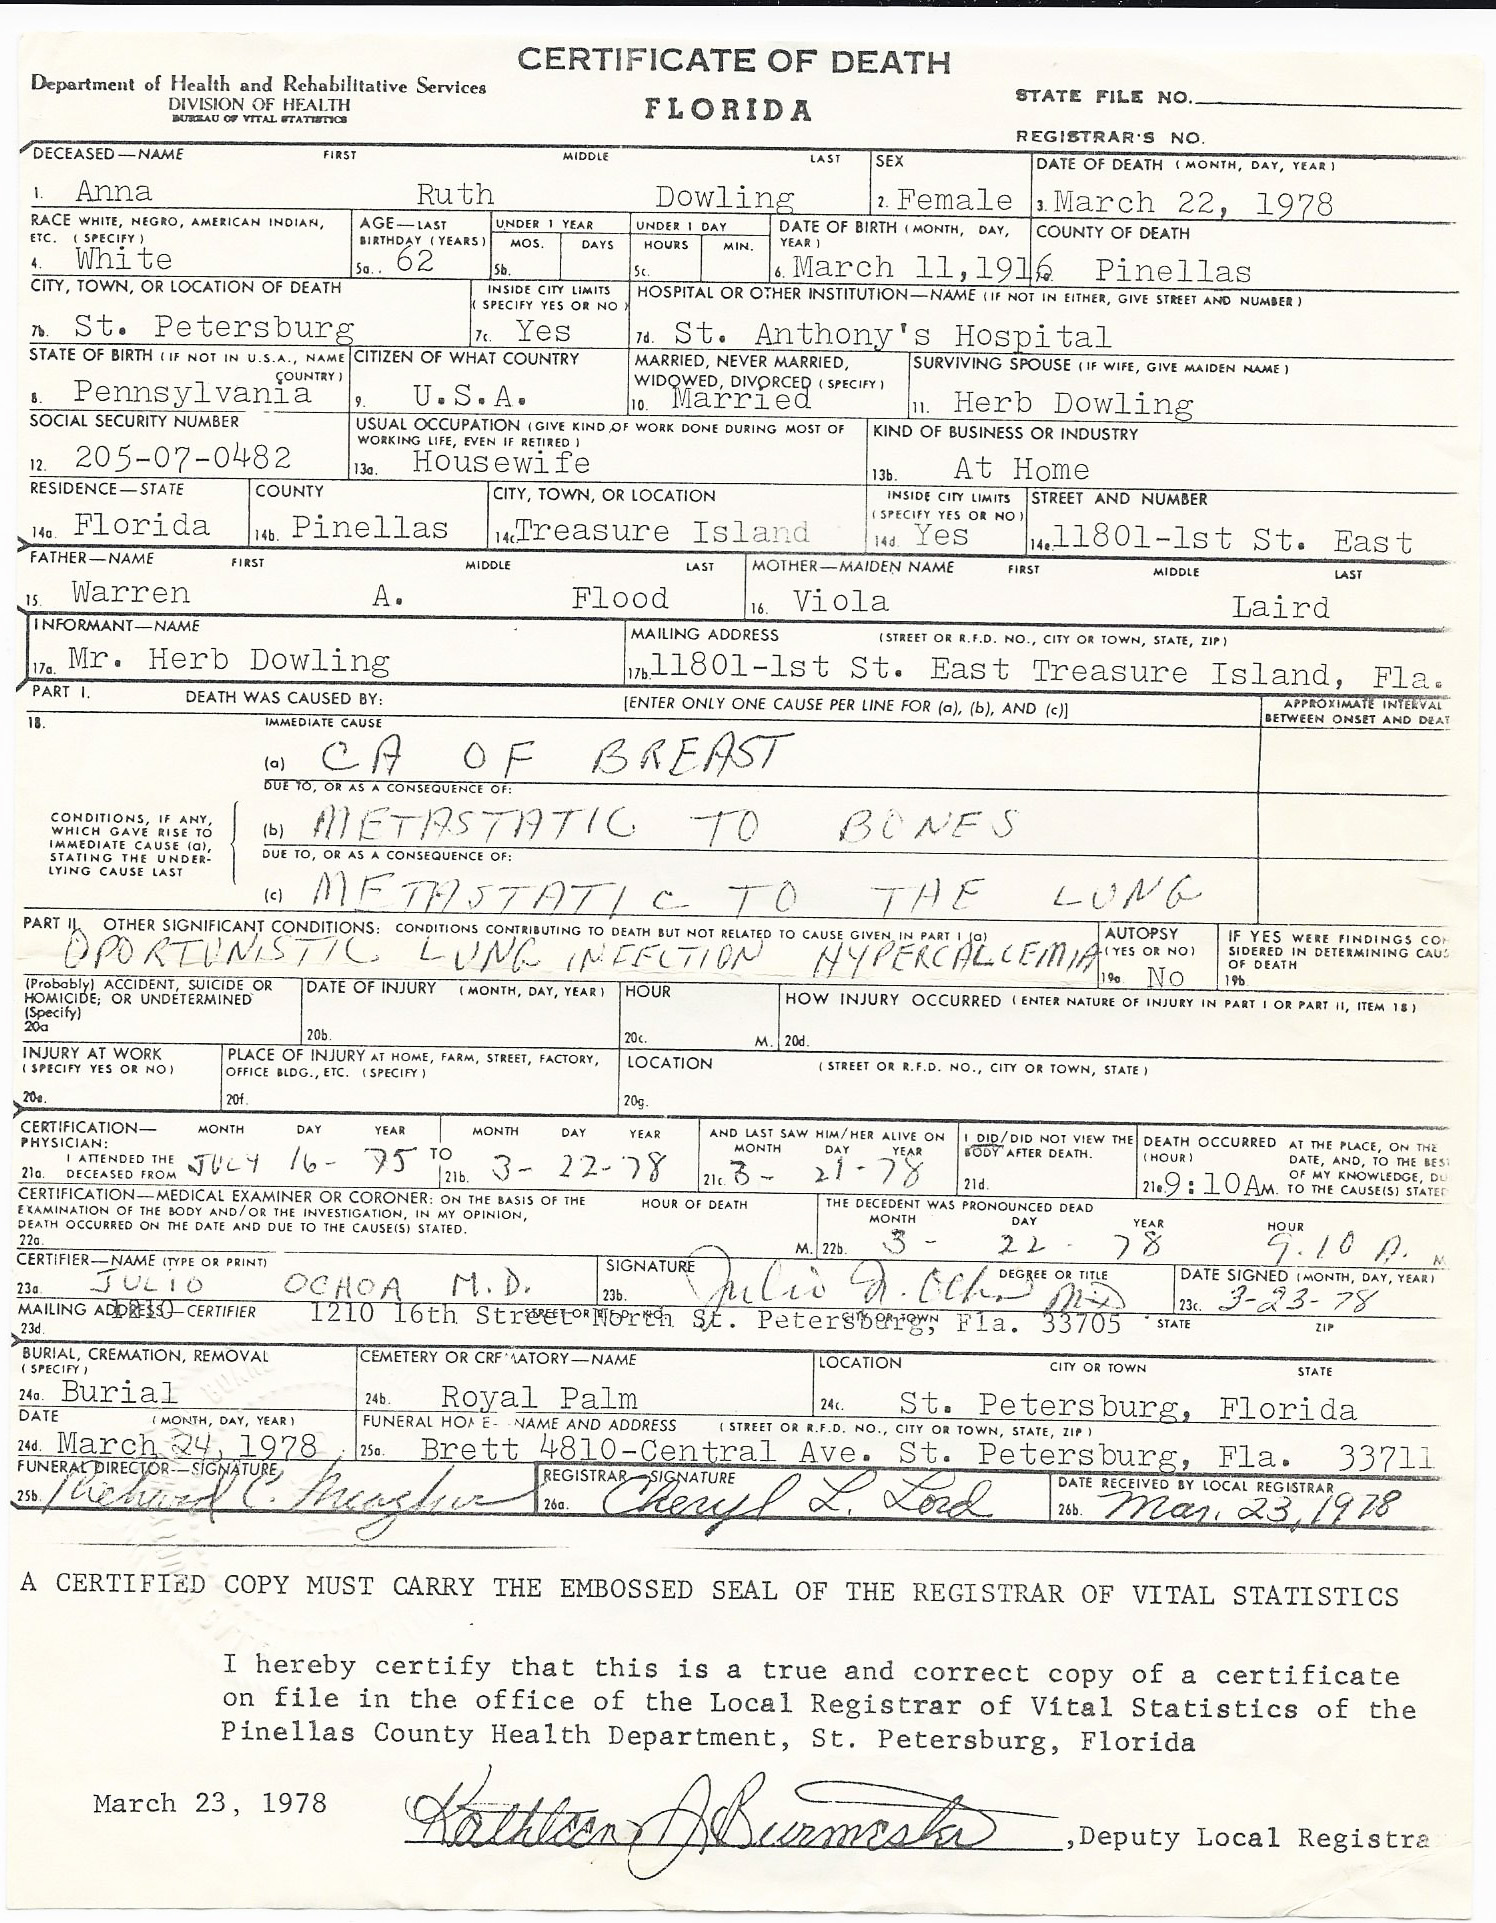 CERTIFICATE OF DEATH
Department of Health and Rehabilitative Services
DIVISION OF HEALTH
BUREAU OF VITAL STATISTICS
FLORIDA
STATE FILE NO.
REGISTRAR'S NO.
DECEASED—NAME FIRST MIDDLE LAST SEX DATE OF DEATH (MONTH, DAY, YEAR)
1. Anna Ruth Dowling 2. Female 3. March 22, 1978
RACE WHITE, NEGRO, AMERICAN INDIAN, ETC. (SPECIFY) AGE—LAST BIRTHDAY (YEARS) UNDER 1 YEAR MOS. DAYS UNDER 1 DAY HOURS MIN. DATE OF BIRTH (MONTH, DAY, YEAR) COUNTY OF DEATH
4. White 5a. 62 5b. 5c. 6. March 11, 1916 Pinellas
CITY, TOWN, OR LOCATION OF DEATH INSIDE CITY LIMITS (SPECIFY YES OR NO) HOSPITAL OR OTHER INSTITUTION—NAME (IF NOT IN EITHER, GIVE STREET AND NUMBER)
7b. St. Petersburg 7c. Yes 7d. St. Anthony's Hospital
STATE OF BIRTH (IF NOT IN U.S.A., NAME COUNTRY) CITIZEN OF WHAT COUNTRY MARRIED, NEVER MARRIED, WIDOWED, DIVORCED (SPECIFY) SURVIVING SPOUSE (IF WIFE, GIVE MAIDEN NAME)
8. Pennsylvania 9. U.S.A. 10. Married 11. Herb Dowling
SOCIAL SECURITY NUMBER USUAL OCCUPATION (GIVE KIND OF WORK DONE DURING MOST OF WORKING LIFE, EVEN IF RETIRED) KIND OF BUSINESS OR INDUSTRY
12. 205-07-0482 13a. Housewife 13b. At Home
RESIDENCE—STATE COUNTY CITY, TOWN, OR LOCATION INSIDE CITY LIMITS (SPECIFY YES OR NO) STREET AND NUMBER
14a. Florida 14b. Pinellas 14c. Treasure Island 14d. Yes 14e. 11801-1st St. East
FATHER—NAME FIRST MIDDLE LAST MOTHER—MAIDEN NAME FIRST MIDDLE LAST
15. Warren A. Flood 16. Viola Laird
INFORMANT—NAME MAILING ADDRESS (STREET OR R.F.D. NO., CITY OR TOWN, STATE, ZIP)
17a. Mr. Herb Dowling 17b. 11801-1st St. East Treasure Island, Fla.
PART I. DEATH WAS CAUSED BY: [ENTER ONLY ONE CAUSE PER LINE FOR (a), (b), AND (c)] APPROXIMATE INTERVAL BETWEEN ONSET AND DEAT
18. IMMEDIATE CAUSE
(a) CA OF BREAST
DUE TO, OR AS A CONSEQUENCE OF:
CONDITIONS, IF ANY, WHICH GAVE RISE TO IMMEDIATE CAUSE (a), STATING THE UNDERLYING CAUSE LAST
(b) METASTATIC TO BONES
DUE TO, OR AS A CONSEQUENCE OF:
(c) METASTATIC TO THE LUNG
PART II. OTHER SIGNIFICANT CONDITIONS: CONDITIONS CONTRIBUTING TO DEATH BUT NOT RELATED TO CAUSE GIVEN IN PART I (a) AUTOPSY (YES OR NO) IF YES WERE FINDINGS CON SIDERED IN DETERMINING CAUS OF DEATH
OPORTUNISTIC LUNG INFECTION HYPERCALCEMIA 19a. No 19b.
(Probably) ACCIDENT, SUICIDE OR HOMICIDE; OR UNDETERMINED (Specify) DATE OF INJURY (MONTH, DAY, YEAR) HOUR HOW INJURY OCCURRED (ENTER NATURE OF INJURY IN PART I OR PART II, ITEM 18)
20a 20b. 20c. M. 20d.
INJURY AT WORK (SPECIFY YES OR NO) PLACE OF INJURY AT HOME, FARM, STREET, FACTORY, OFFICE BLDG., ETC. (SPECIFY) LOCATION (STREET OR R.F.D. NO., CITY OR TOWN, STATE)
20e. 20f. 20g.
CERTIFICATION—PHYSICIAN: MONTH DAY YEAR MONTH DAY YEAR AND LAST SAW HIM/HER ALIVE ON MONTH DAY YEAR I DID/DID NOT VIEW THE BODY AFTER DEATH. DEATH OCCURRED (HOUR) AT THE PLACE, ON THE DATE, AND, TO THE BES OF MY KNOWLEDGE, DU TO THE CAUSE(S) STATED
21a. I ATTENDED THE DECEASED FROM JULY 16- 75 TO 21b. 3- 22-78 21c. 3- 21-78 21d. 21e. 9:10 A M.
CERTIFICATION—MEDICAL EXAMINER OR CORONER: ON THE BASIS OF THE EXAMINATION OF THE BODY AND/OR THE INVESTIGATION, IN MY OPINION, DEATH OCCURRED ON THE DATE AND DUE TO THE CAUSE(S) STATED. HOUR OF DEATH THE DECEDENT WAS PRONOUNCED DEAD MONTH DAY YEAR HOUR
22a. M. 22b. 3- 22- 78 9.10 A. M
CERTIFIER—NAME (TYPE OR PRINT) SIGNATURE DEGREE OR TITLE DATE SIGNED (MONTH, DAY, YEAR)
23a. JULIO OCHOA M.D. 23b. Julio N. Ochoa MD 23c. 3-23-78
MAILING ADDRESS—CERTIFIER STREET OR R.F.D. NO. CITY OR TOWN STATE ZIP
23d. 1210 1210 16th Street North St. Petersburg, Fla. 33705
BURIAL, CREMATION, REMOVAL (SPECIFY) CEMETERY OR CREMATORY—NAME LOCATION CITY OR TOWN STATE
24a. Burial 24b. Royal Palm 24c. St. Petersburg, Florida
DATE (MONTH, DAY, YEAR) FUNERAL HOME—NAME AND ADDRESS (STREET OR R.F.D. NO., CITY OR TOWN, STATE, ZIP)
24d. March 24, 1978 25a. Brett 4810-Central Ave. St. Petersburg, Fla. 33711
FUNERAL DIRECTOR—SIGNATURE REGISTRAR—SIGNATURE DATE RECEIVED BY LOCAL REGISTRAR
25b. Richard C. 26a. Cheryl L. Lord 26b. Mar. 23, 1978
A CERTIFIED COPY MUST CARRY THE EMBOSSED SEAL OF THE REGISTRAR OF VITAL STATISTICS
I hereby certify that this is a true and correct copy of a certificate
on file in the office of the Local Registrar of Vital Statistics of the
Pinellas County Health Department, St. Petersburg, Florida
March 23, 1978 Kathleen J. Burmester ,Deputy Local Registra